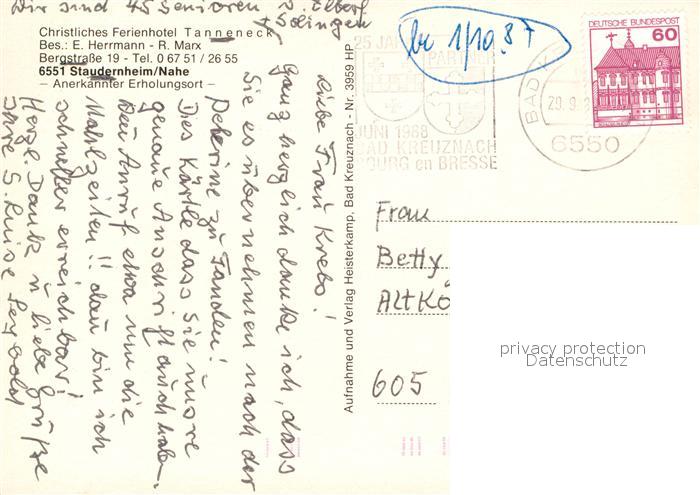 Wir sind 45 Senioren v. Elberf.
+ Solingen
Christliches Ferienhotel Tanneneck
Bes.: E. Herrmann - R. Marx
Bergstraße 19 - Tel. 0 67 51 / 26 55
6551 Staudernheim/Nahe
– Anerkannter Erholungsort –
Liebe Frau Krebs!
Ganz herzlich danke ich, dass
Sie es übernehmen nach der
Pelerine zu fanden!
Dies Kärtle dass Sie unsre
genaue Anschrift auch haben.
Den Anruf etwa um die
Mahlzeiten!! dau bin ich
schneller erreichbar!
Herzl. Dank u liebe Grüße
Ihre S. Luise Seybold
Aufnahme und Verlag Heisterkamp, Bad Kreuznach - Nr. 3959 HP
be 1/10.87
25 JA
PARTNER
JUNI 1988
BAD KREUZNACH
BOURG en BRESSE
BAD K
29.9.
6550
DEUTSCHE BUNDESPOST
60
Frau
Betty
Altkö
605
privacy protection
Datenschutz